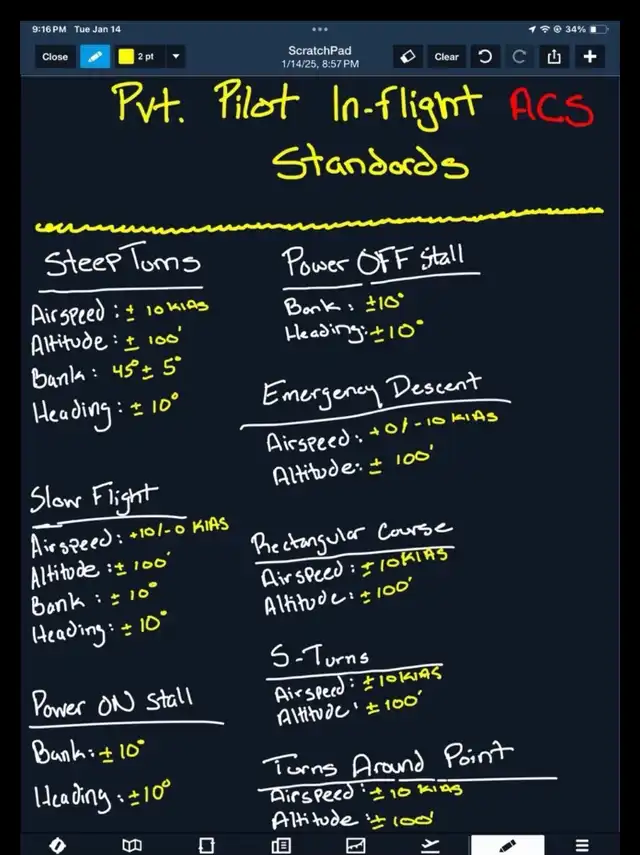 9:16 PM Tue Jan 14
34%
Close
2 pt
ScratchPad
1/14/25, 8:57 PM
Clear
Pvt. Pilot In-flight ACS
Standards
Steep Turns
Airspeed: ± 10 KIAS
Altitude: ± 100'
Bank: 45° ± 5°
Heading: ± 10°
Slow Flight
Airspeed: +10/-0 KIAS
Altitude: ± 100'
Bank: ± 10°
Heading: ± 10°
Power ON Stall
Bank: ± 10°
Heading: ± 10°
Power OFF Stall
Bank: ± 10°
Heading: ± 10°
Emergency Descent
Airspeed: +0/-10 KIAS
Altitude: ± 100'
Rectangular Course
Airspeed: ± 10 KIAS
Altitude: ± 100'
S-Turns
Airspeed: ± 10 KIAS
Altitude: ± 100'
Turns Around Point
Airspeed: ± 10 KIAS
Altitude: ± 100'